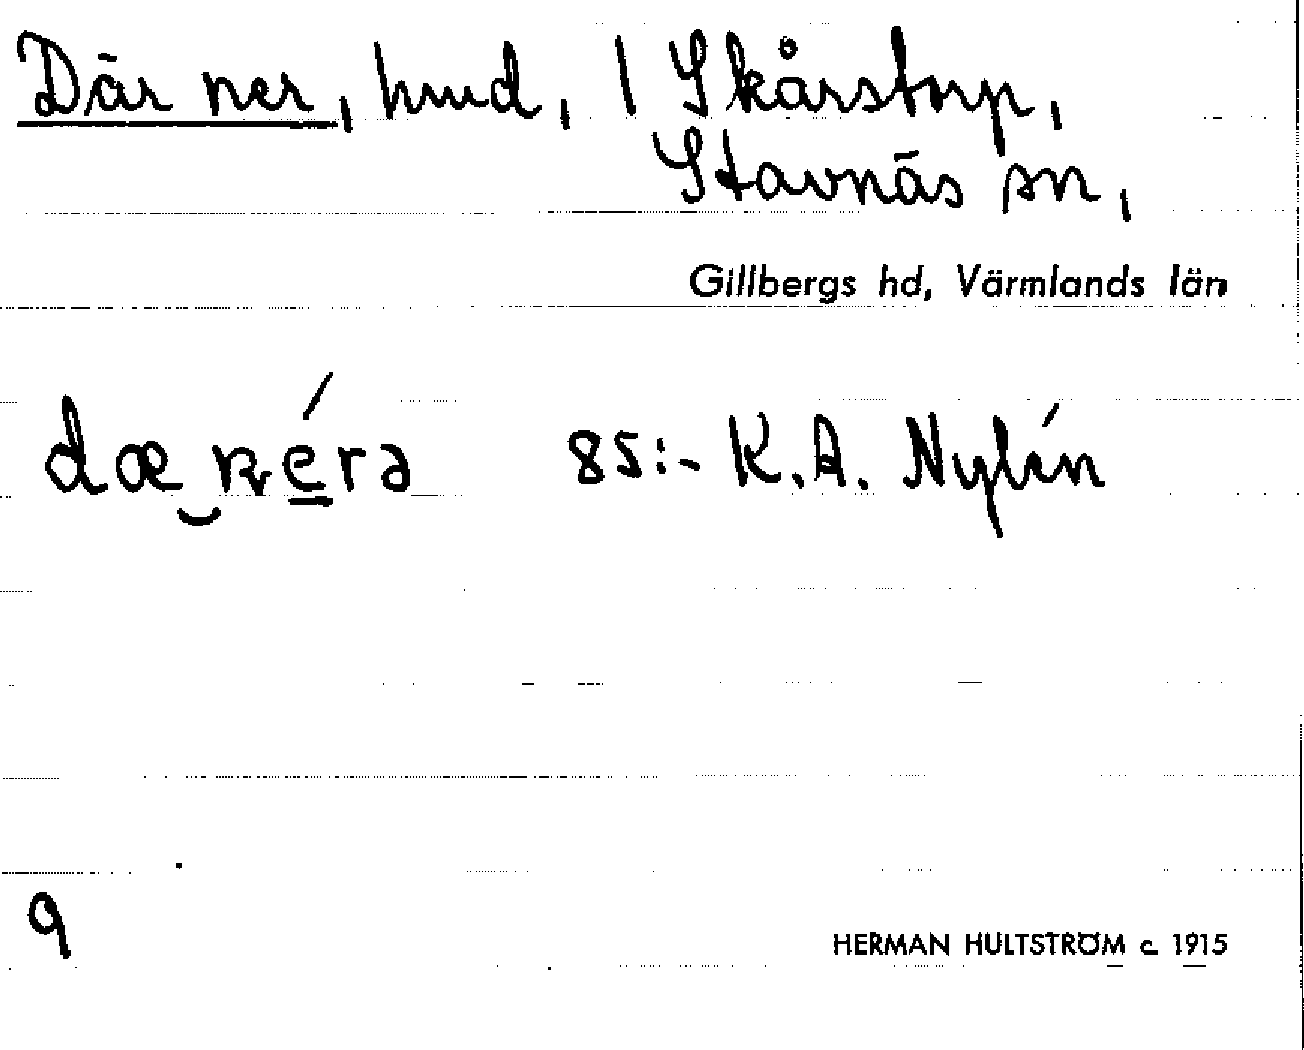 Där ner, hmd, 1 Skårstorp,
Stavnäs sn,
Gillbergs hd, Värmlands län
dæ néra 85:- K.A. Nylén
9
HERMAN HULTSTRÖM c. 1915